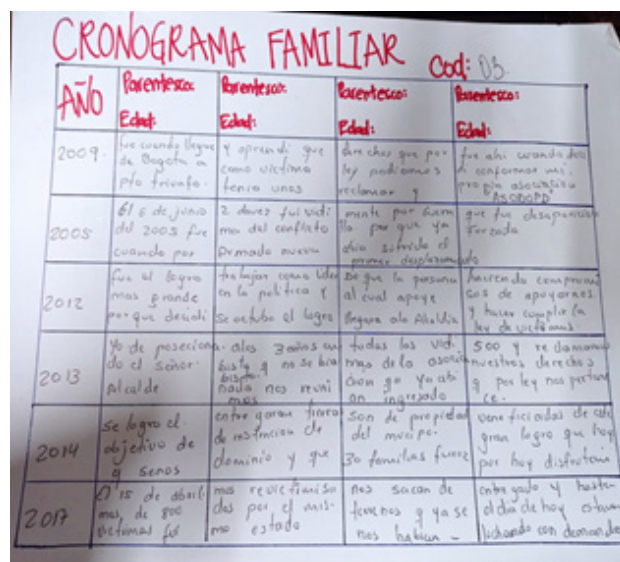 CRONOGRAMA FAMILIAR Cod: 03.
AÑO
Parentesco:
Edad:
Parentesco:
Edad:
Parentesco:
Edad:
Parentesco:
Edad:
2009.
fue cuando llegue
de Bogota a
pto triunfo.
y aprendi que
como victima
tenia unos
derechos que por
ley podiamos
reclamar y
fue ahi cuando
conformar mi
propia asociación
2005
El 6 de junio
del 2005 fue
cuando por
2 davez fui victi
ma del conflicto
Armado
mente por
lla por que ya
abia sufrido el
primer desplazamiento
que fue desaparicion
Forzada
2012
fue el logro
mas grande
porque decidi
trabajar como lider
en la politica y
Se octubo el logro
De que la persona
al cual apoye
llegara ala Alcaldia
haciendo compromi
sos de apoyarnos
y hacer cumplir la
ley de victimas.
2013
Yo de poseciona
do el señor
Alcalde
alos 3 años
q no se bia
nada nos reuni
mos
todas las victi
mas dela asocia
cion q Ya abi
an ingresado
500 y reclamamos
nuestros derechos
q por ley nos pertene
ce.
2014
se logro el
objetivo de
q senos
entregaran
de
dominio y que
son de propiedad
del
30 familias fueron
veneficiadas de este
gran logro que hoy
por hoy disfrutan
2017
El 15 de abril
mas de 800
victimas fui
mos revictimisa
dos por el mis
mo estado
nos sacan de
terrenos q ya se
nos habian -
entregado y hasta
el dia de hoy estamos
luchando con demandas